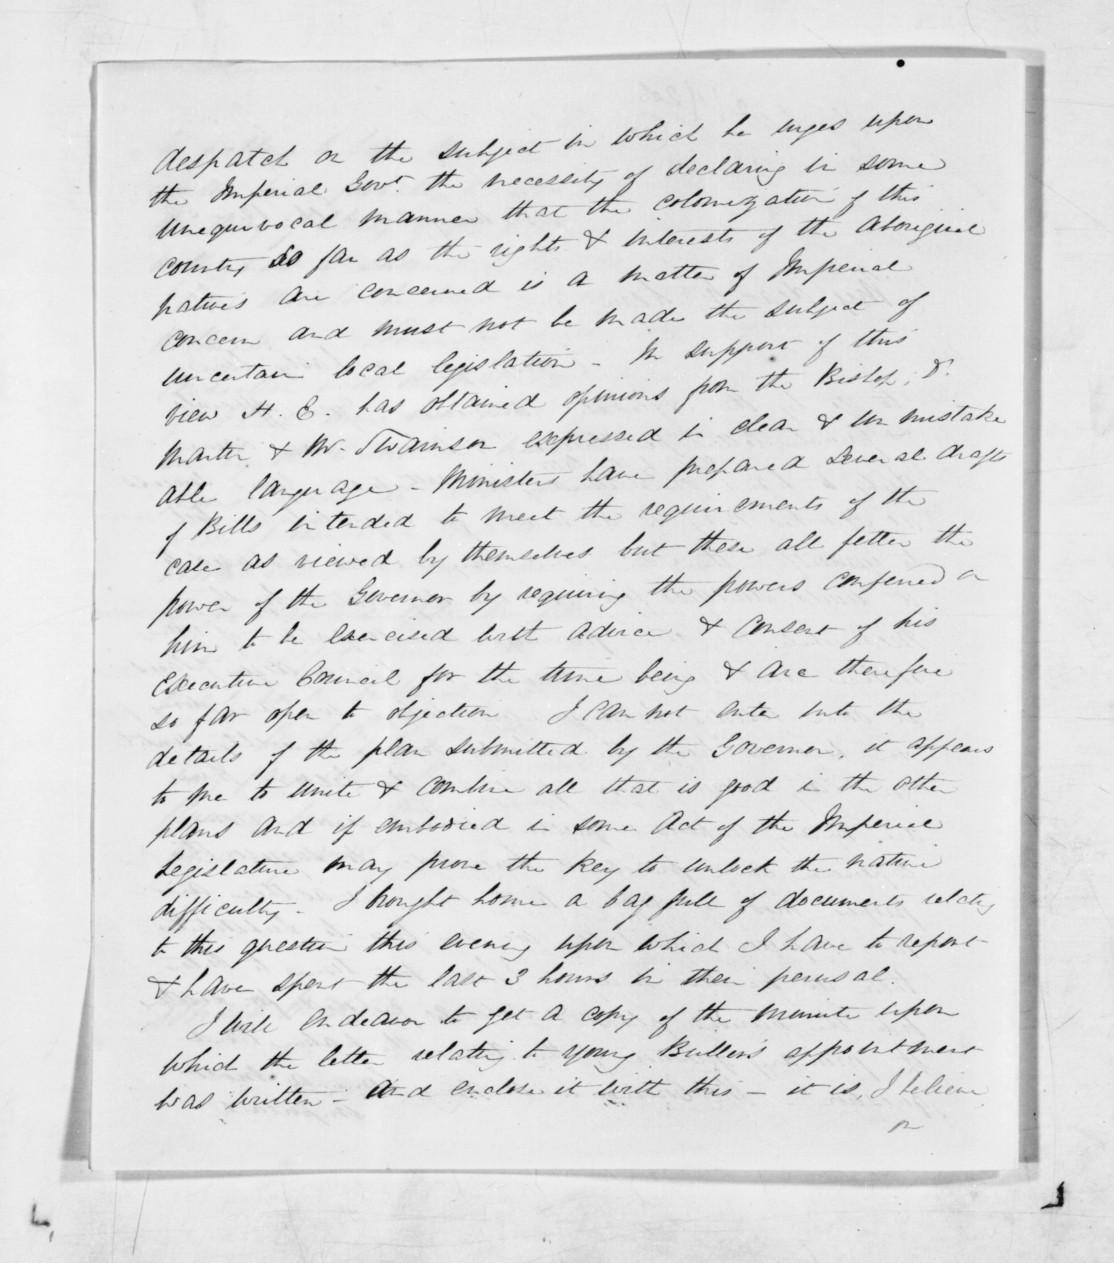 despatch on the subject in which he urges upon
the Imperial Govt. the necessity of declaring in some
unequivocal manner that the colonization of this
country so far as the rights & interests of the aboriginal
natives are concerned is a matter of Imperial
concern and must not be made the subject of
uncertain local legislation - In support of this
view H. E. has obtained opinions from the Bishop, Dr.
Martin & Mr. Swainson expressed in clear & un mistake
able language - Ministers have prepared several drafts
of Bills intended to meet the requirements of the
case as viewed by themselves but these all fetter the
power of the Governor by requiring the powers conferred on
him to be exercised with advice & consent of his
Executive Council for the time being & are therefore
so far open to objection I can not enter into the
details of the plan submitted by the Governor, it appears
to me to unite & combine all that is good in the other
plans and if embodied in some Act of the Imperial
Legislature may prove the key to unlock the native
difficulty - I brought home a bag full of documents relating
to this question this evening upon which I have to report
& have spent the last 3 hours in their perusal.
I will endeavor to get a copy of the minute upon
which the letter relating to young Buller's appointment
was written - And enclose it with this - it is, I believe
on